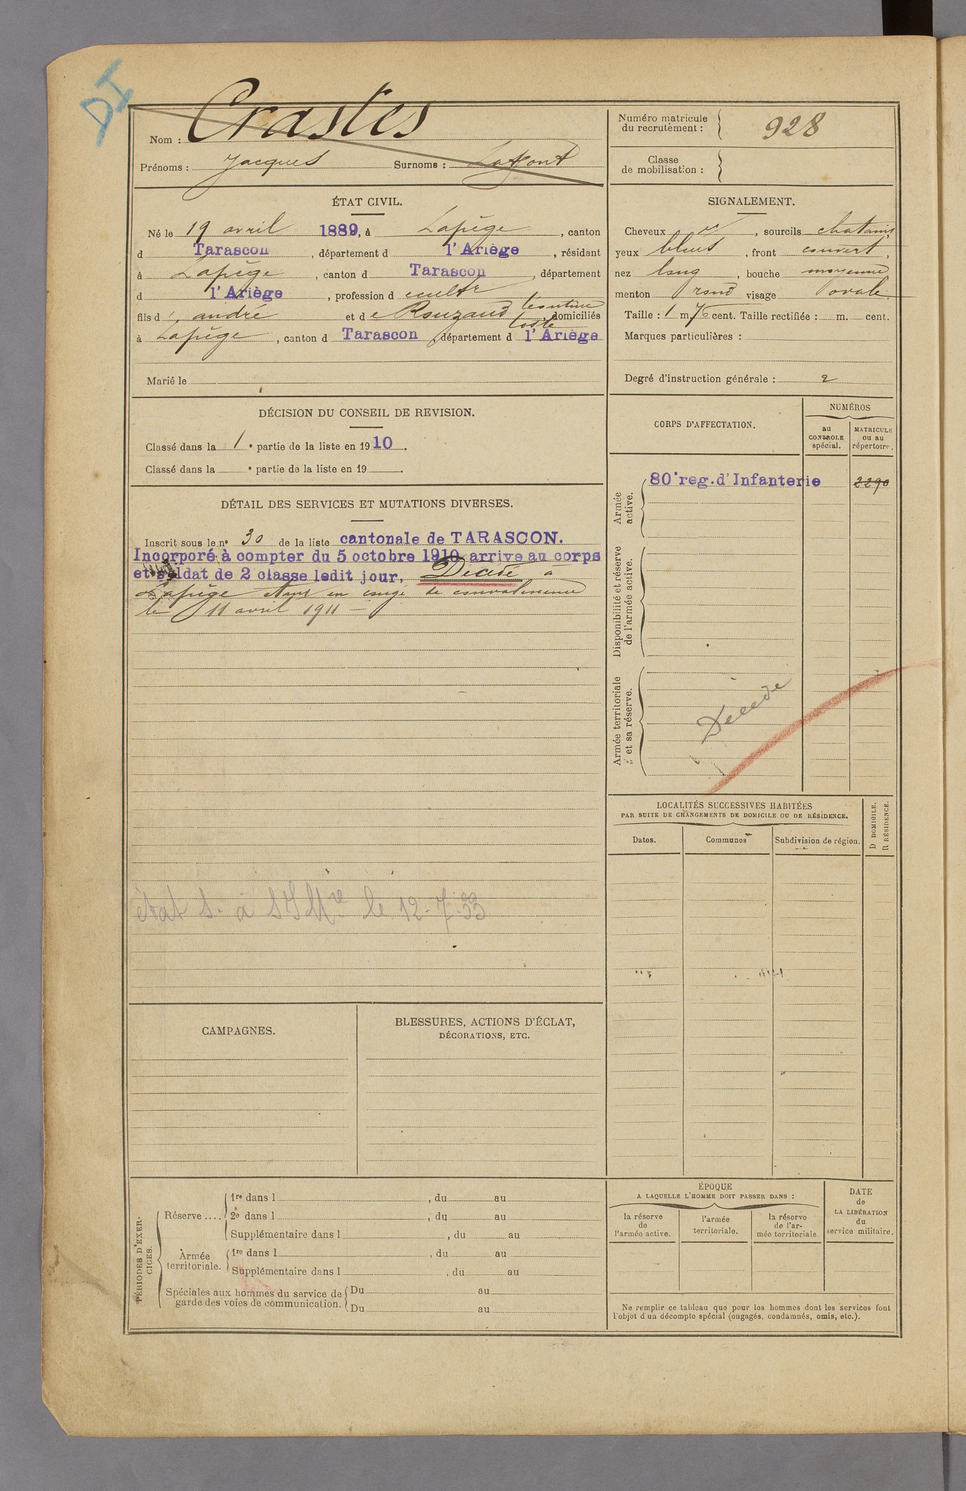 DI
Nom : Crastes
Prénoms : Jacques Surnoms : Lafont
Numéro matricule du recrutement : 928
Classe de mobilisation :
ÉTAT CIVIL.
Né le 19 avril 1889, à Lapège, canton
d Tarascon, département d l'Ariège, résidant
à Lapège, canton d Tarascon, département
d l'Ariège, profession d cultr
fils d' andré et d e Rouzaud domiciliés
à Lapège, canton d Tarascon, département d l'Ariège
Marié le
SIGNALEMENT.
Cheveux, sourcils chatains
yeux bleus, front couvert,
nez long, bouche moyenne
menton rond visage ovale
Taille : 1 m. 76 cent. Taille rectifiée : m. cent.
Marques particulières :
Degré d'instruction générale : 2
DÉCISION DU CONSEIL DE REVISION.
Classé dans la 1 e partie de la liste en 1910.
Classé dans la e partie de la liste en 19
DÉTAIL DES SERVICES ET MUTATIONS DIVERSES.
Inscrit sous le nº 30 de la liste cantonale de TARASCON.
Incorporé à compter du 5 octobre 1910, arrive au corps
et soldat de 2 classe ledit jour, Décédé à
Lapège étant en congé de convalescence
le 11 avril 1911
état S. à le 12-7-33
CORPS D'AFFECTATION.
NUMÉROS
au CONTROLE spécial.
MATRICULE ou au répertoire.
Armée active.
80e reg. d'Infanterie 2290
Disponibilité et réserve de l'armée active.
Armée territoriale et sa réserve.
Décédé
LOCALITÉS SUCCESSIVES HABITÉES
PAR SUITE DE CHANGEMENTS DE DOMICILE OU DE RÉSIDENCE.
Dates. Communes Subdivision de région.
D DOMICILE.
R RÉSIDENCE.
CAMPAGNES.
BLESSURES, ACTIONS D'ÉCLAT,
DÉCORATIONS, ETC.
PÉRIODES D'EXERCICES.
Réserve ....
1re dans l , du au
2e dans l , du au
Supplémentaire dans l , du au
Armée territoriale.
1re dans l , du au
Supplémentaire dans l , du au
Spéciales aux hommes du service de garde des voies de communication.
Du au
Du au
ÉPOQUE
A LAQUELLE L'HOMME DOIT PASSER DANS :
la réserve de l'armée active.
l'armée territoriale.
la réserve de l'armée territoriale.
DATE de LA LIBÉRATION du service militaire.
Ne remplir ce tableau que pour les hommes dont les services font
l'objet d'un décompte spécial (engagés, condamnés, omis, etc.).